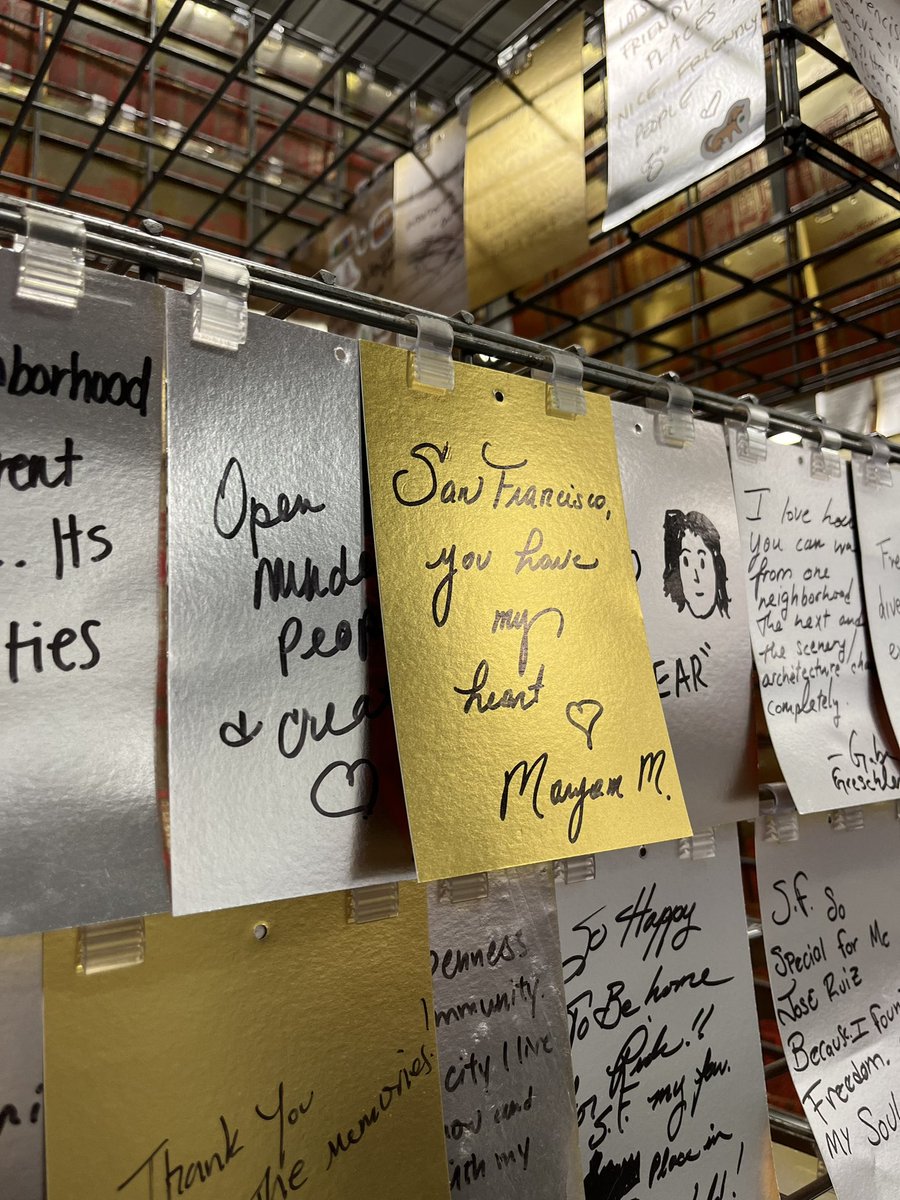 LOTS
FRIENDLY
PLACES
NICE, FRIENDLY
PEOPLE
borhood
rent
.. Its
ties
Open
minde
Peop
& crea
San Francisco,
you have
my
heart
Maryam M.
EAR"
I love how
you can wa
from one
neighborhood
the next and
the scenery/
architecture cha
completely.
- Gabe
Greschler
Fre
dive
e
Thank You
the memories.
penness
mmunity.
city I live
now and
with my
So Happy
To Be home
S.F. my fav.
Place in
S.F. So
Special for Me
Jose Ruiz
Because I foun
Freedom.
My Soul